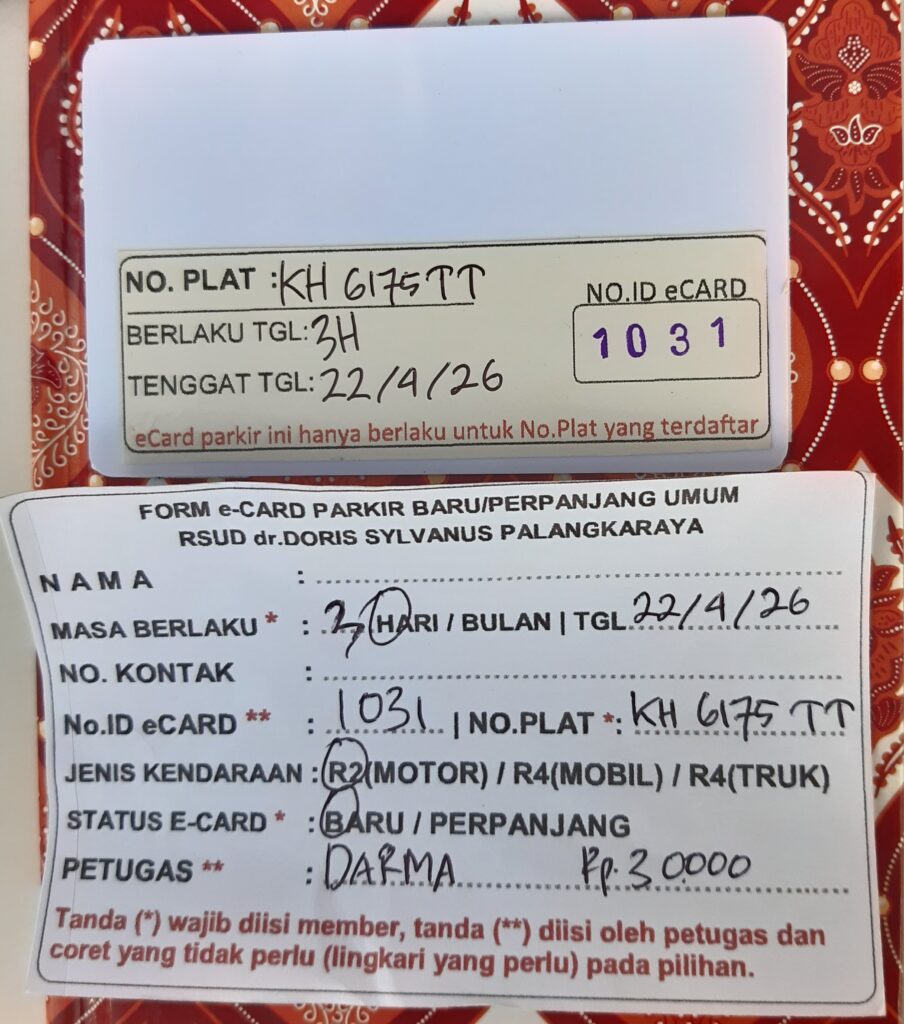 NO. PLAT : KH 6175 TT
NO.ID eCARD
1031
BERLAKU TGL: 3H
TENGGAT TGL: 22/4/26
eCard parkir ini hanya berlaku untuk No.Plat yang terdaftar
FORM e-CARD PARKIR BARU/PERPANJANG UMUM
RSUD dr.DORIS SYLVANUS PALANGKARAYA
NAMA :
MASA BERLAKU * : 3 HARI / BULAN | TGL 22/4/26
NO. KONTAK :
No.ID eCARD ** : 1031 | NO.PLAT *: KH 6175 TT
JENIS KENDARAAN : R2(MOTOR) / R4(MOBIL) / R4(TRUK)
STATUS E-CARD * : BARU / PERPANJANG
PETUGAS ** : DARMA Rp. 30.000
Tanda (*) wajib diisi member, tanda (**) diisi oleh petugas dan
coret yang tidak perlu (lingkari yang perlu) pada pilihan.